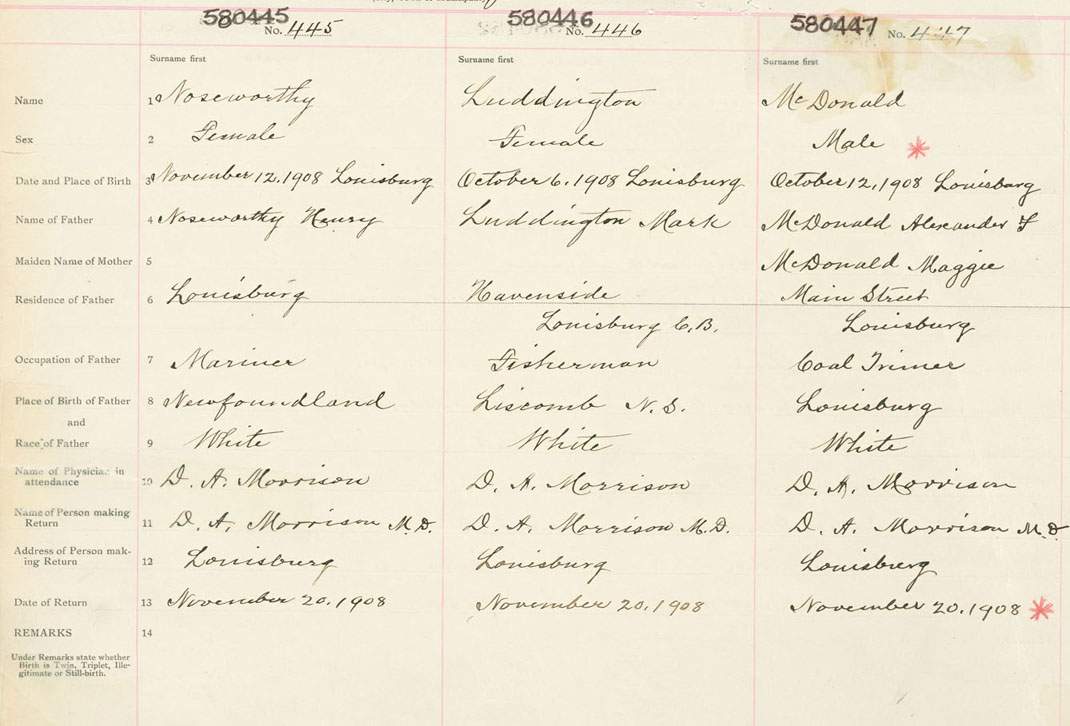 580445 580446 580447
No. 445 No. 446 No. 447
Surname first Surname first Surname first
Name 1 Noseworthy Luddington McDonald
Sex 2 Female Female Male *
Date and Place of Birth 3 November 12, 1908 Louisburg October 6, 1908 Louisburg October 12, 1908 Louisburg
Name of Father 4 Noseworthy Henry Luddington Mark McDonald Alexander F
Maiden Name of Mother 5 McDonald Maggie
Residence of Father 6 Louisburg Havenside Main Street
Louisburg C.B. Louisburg
Occupation of Father 7 Mariner Fisherman Coal Trimer
Place of Birth of Father 8 Newfoundland Liscomb N.S. Louisburg
and
Race of Father 9 White White White
Name of Physician in
attendance 10 D. A. Morrison D. A. Morrison D. A. Morrison
Name of Person making
Return 11 D. A. Morrison M.D. D. A. Morrison M.D. D. A. Morrison M.D.
Address of Person mak-
ing Return 12 Louisburg Louisburg Louisburg
Date of Return 13 November 20, 1908 November 20, 1908 November 20, 1908 *
REMARKS 14
Under Remarks state whether
Birth is Twin, Triplet, Ille-
gitimate or Still-birth.